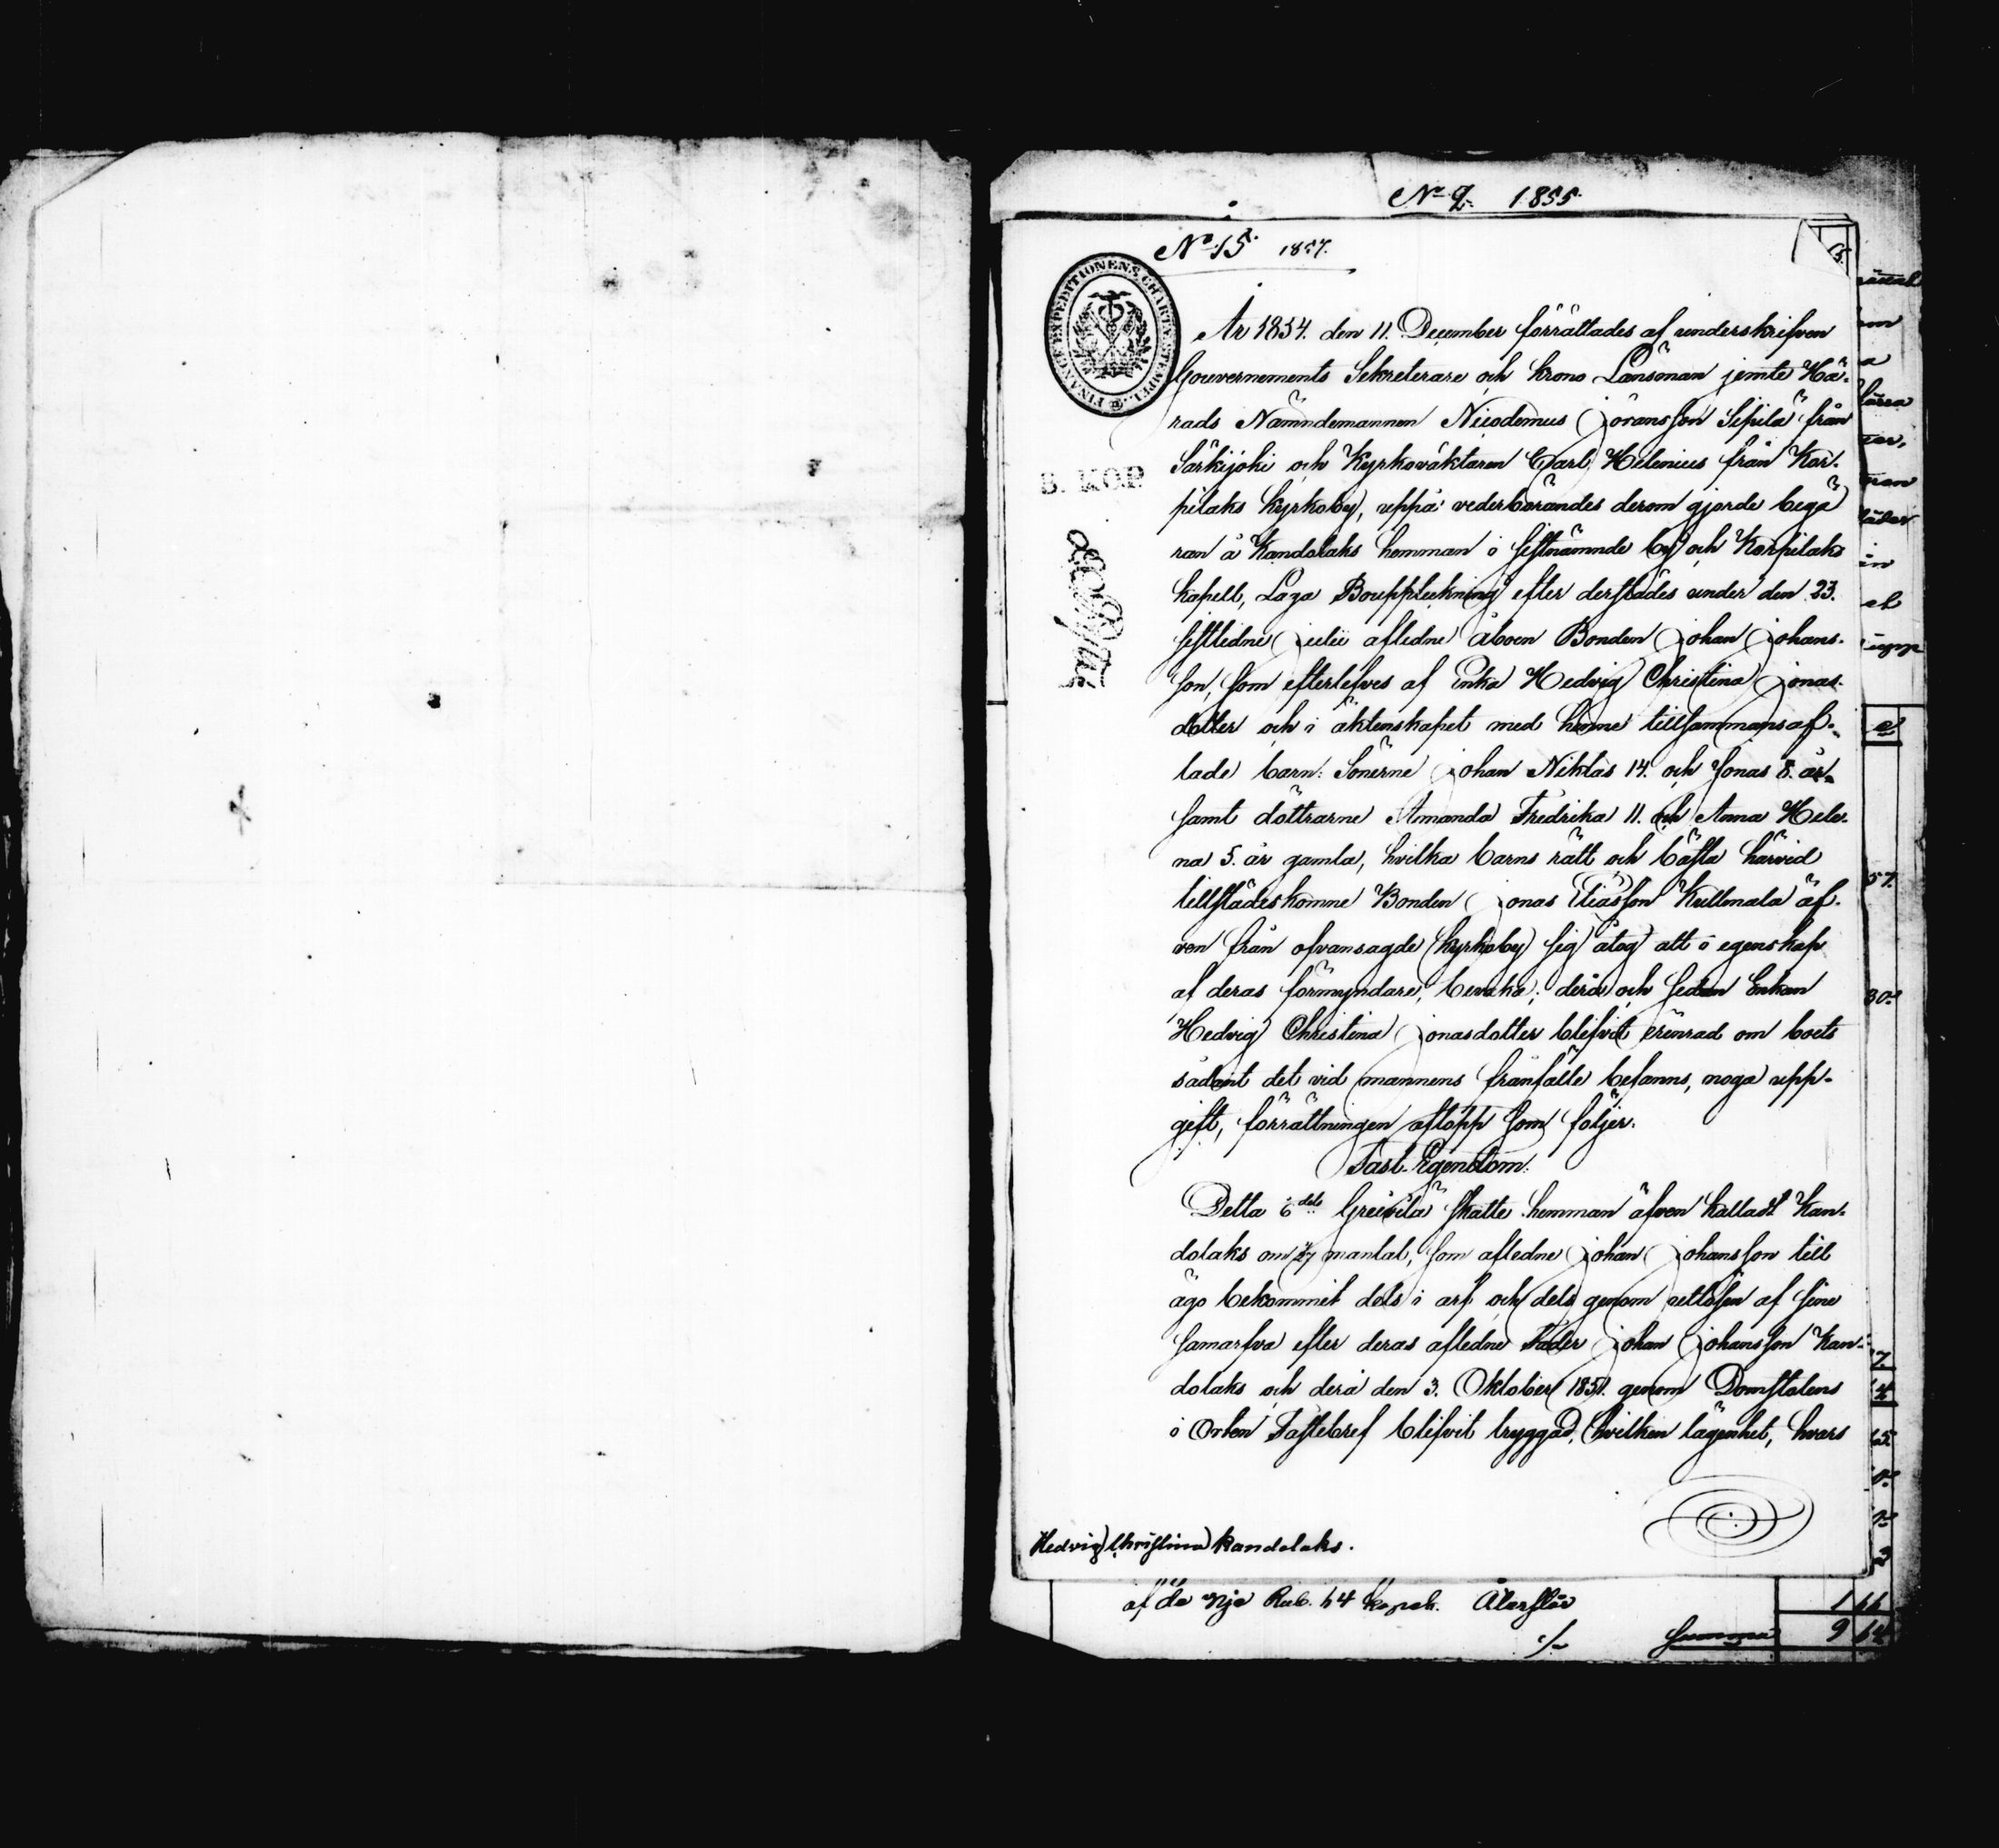 No 2. 1855.
No 15. 1857.
FINANCE EXPEDITIONENS CHARTÆ STEMPEL.
B. KOP.
År 1854. den 11. December förrättades af underskrifven
Gouvernements Sekreterare och krono Länsman jemte Hä-
rads Nämndemannen Nicodemus Joransson Sipilä från
Särkijoki och Kyrkoväktaren Carl Helenius från Kor-
pilaks kyrkoby, uppå vederbörandes derom gjorde begä
ran å Kandolaks hemman i sistnämnde by och Korpilaks
kapell, Laga Bouppteckning efter derstädes under den 23.
sistledne Julii afledne åboen Bonden Johan Johans-
son, som efterlefves af Enka Hedvig Christina Jonas-
dotter och i äktenskapet med henne tillsammansaf-
lade barn: Sönerne Johan Niklas 14. och Jonas 8. år
samt döttrarne Amanda Fredrika 11. och Anna Hele-
na 5. år gamla, hvilka barns rätt och bästa härvid
tillstädeskomne Bonden Jonas Eliasson Kullmala äf-
ven från ofvansagde kyrkoby sig åtog att i egenskap
af deras förmyndare, bevaka; derå och sedan Enkan
Hedvig Christina Jonasdotter blifvit erinrad om boets
sådant det vid mannens frånfälle befanns, noga upp-
gift, förrättningen aflopp som följer.
Fast Egendom.
Detta 6 dels Greivilä skatte hemman äfven kalladt Kan-
dolaks om mantal, som afledne Johan Johansson till
ägo bekommit dels i arf och dels genom utlösen af sine
samarfva efter deras afledne Fader Johan Johansson Kan-
dolaks och derå den 3. Oktober 1851. genom Domstolens
i Orten Fastebref blifvit tryggad, hvilken lägenhet, hvars
Hedvig Christina Kandolaks.
af de nje Rub. 64 kopek. Återstår 1 66
Summa 9 64